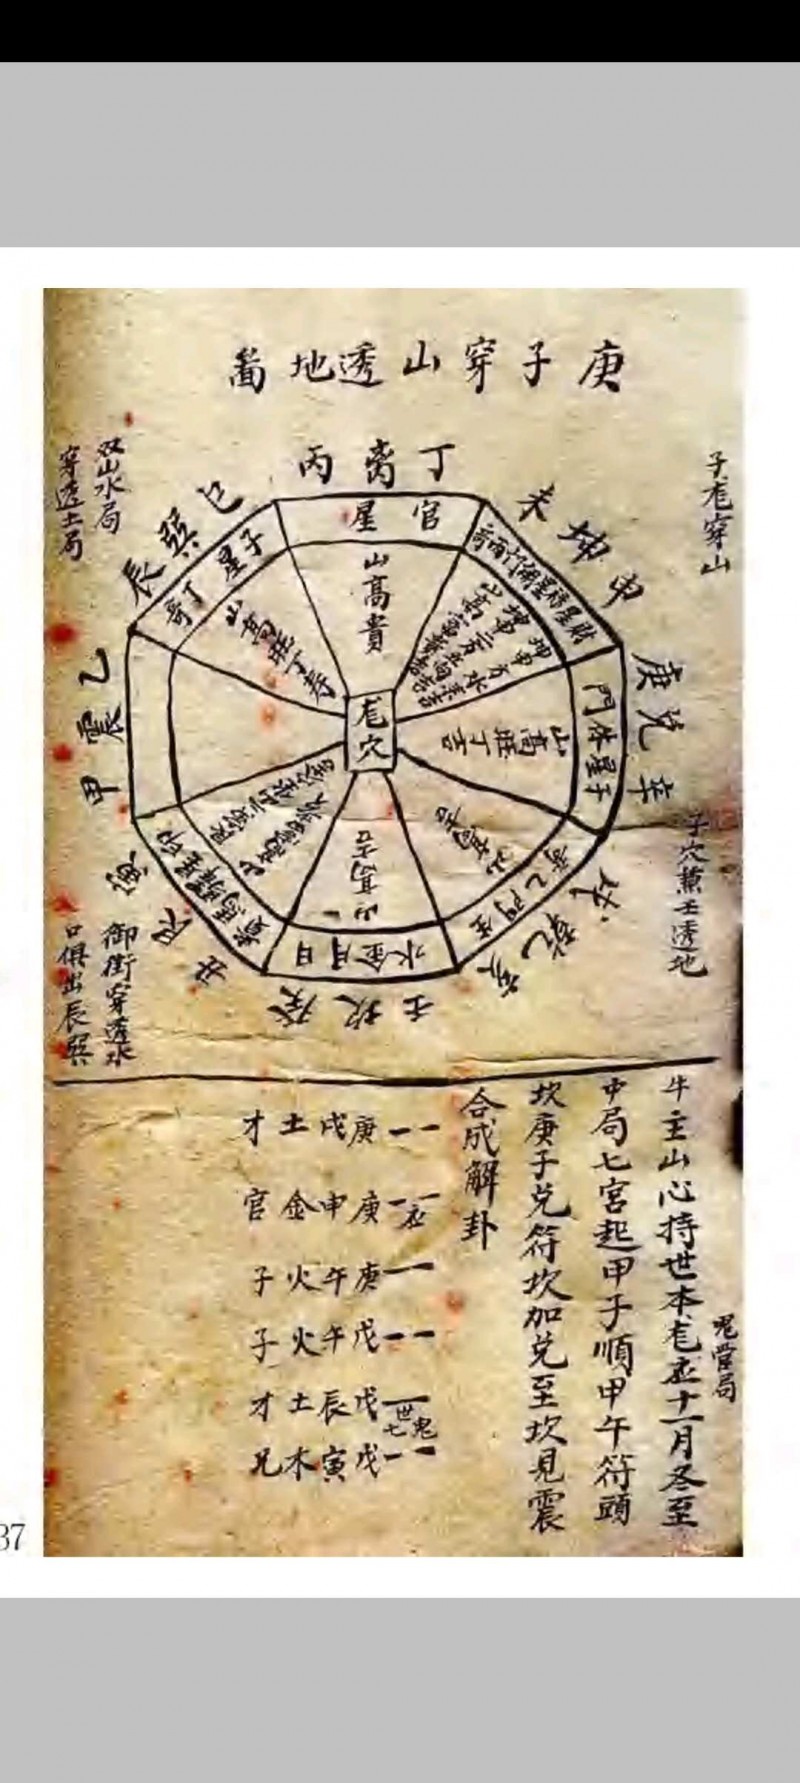 庚子穿山透地啚
子龙穿山
子穴兼壬透地
双山水局
穿透土局
御街穿透水
口俱出辰巽
丙离丁
未坤申
庚兌辛
戌乾亥
壬坎癸
丑艮寅
甲震乙
辰巽巳
官星
山高貴
門休星子
山高旺丁吉
奇乙門生
山高吉
水金月日
山高吉
奇丁星子
山高旺丁寿
穴
牛主山心持世本龙应十一月冬至
中局七宮起甲子順甲午符頭
坎庚子兌符坎加兌至坎見震
合成解卦
庚戌土才
庚申金官
应
庚午火子
戊午火子
戊辰土才
世
七
戊寅木兄
37